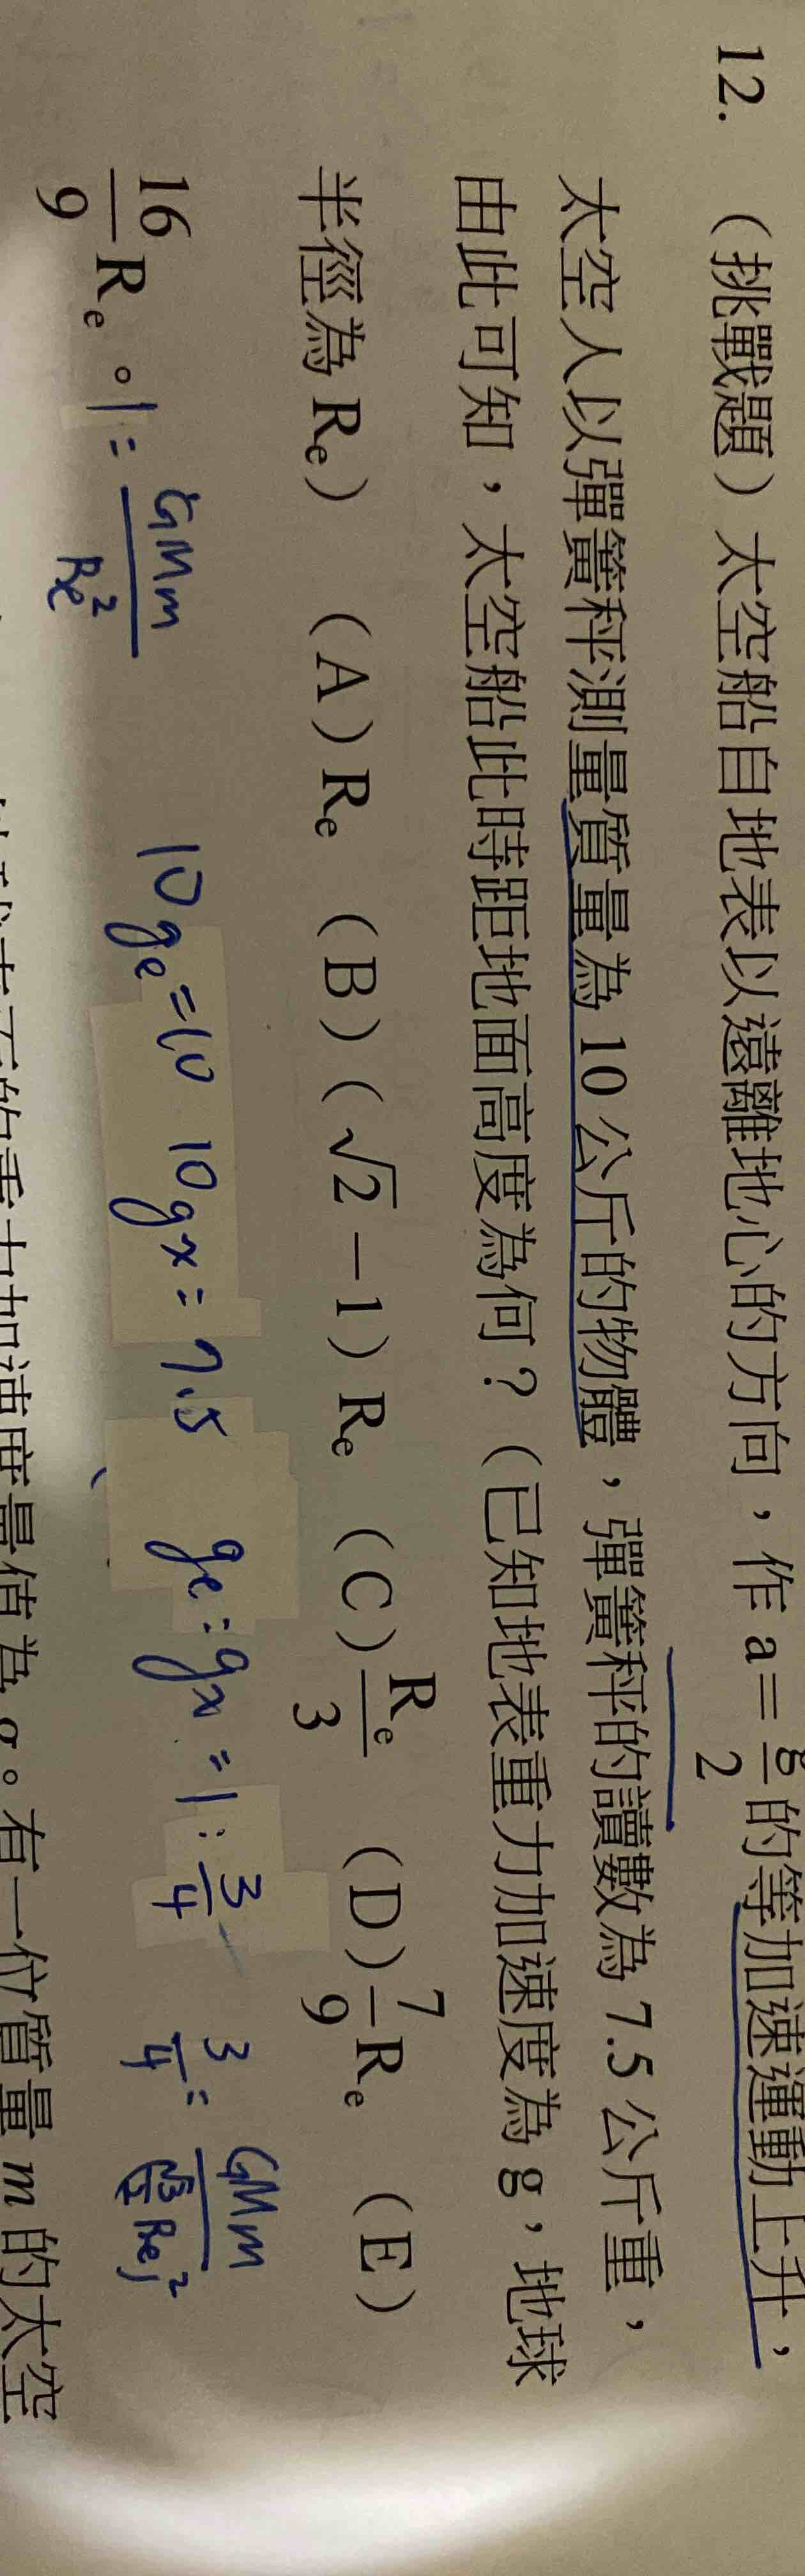 12. （挑戰題）太空船自地表以遠離地心的方向，作 a＝g/2 的等加速運動上升，
太空人以彈簧秤測量質量為 10 公斤的物體，彈簧秤的讀數為 7.5 公斤重，
由此可知，太空船此時距地面高度為何？（已知地表重力加速度為 g，地球
半徑為 Re） （A）Re （B）（√2－1）Re （C）Re/3 （D）7/9 Re （E）
16/9 Re。
1 = GMm/Re²
10ge=10 10gx=7.5 ge:gx=1:3/4
有一位質量 m 的太空